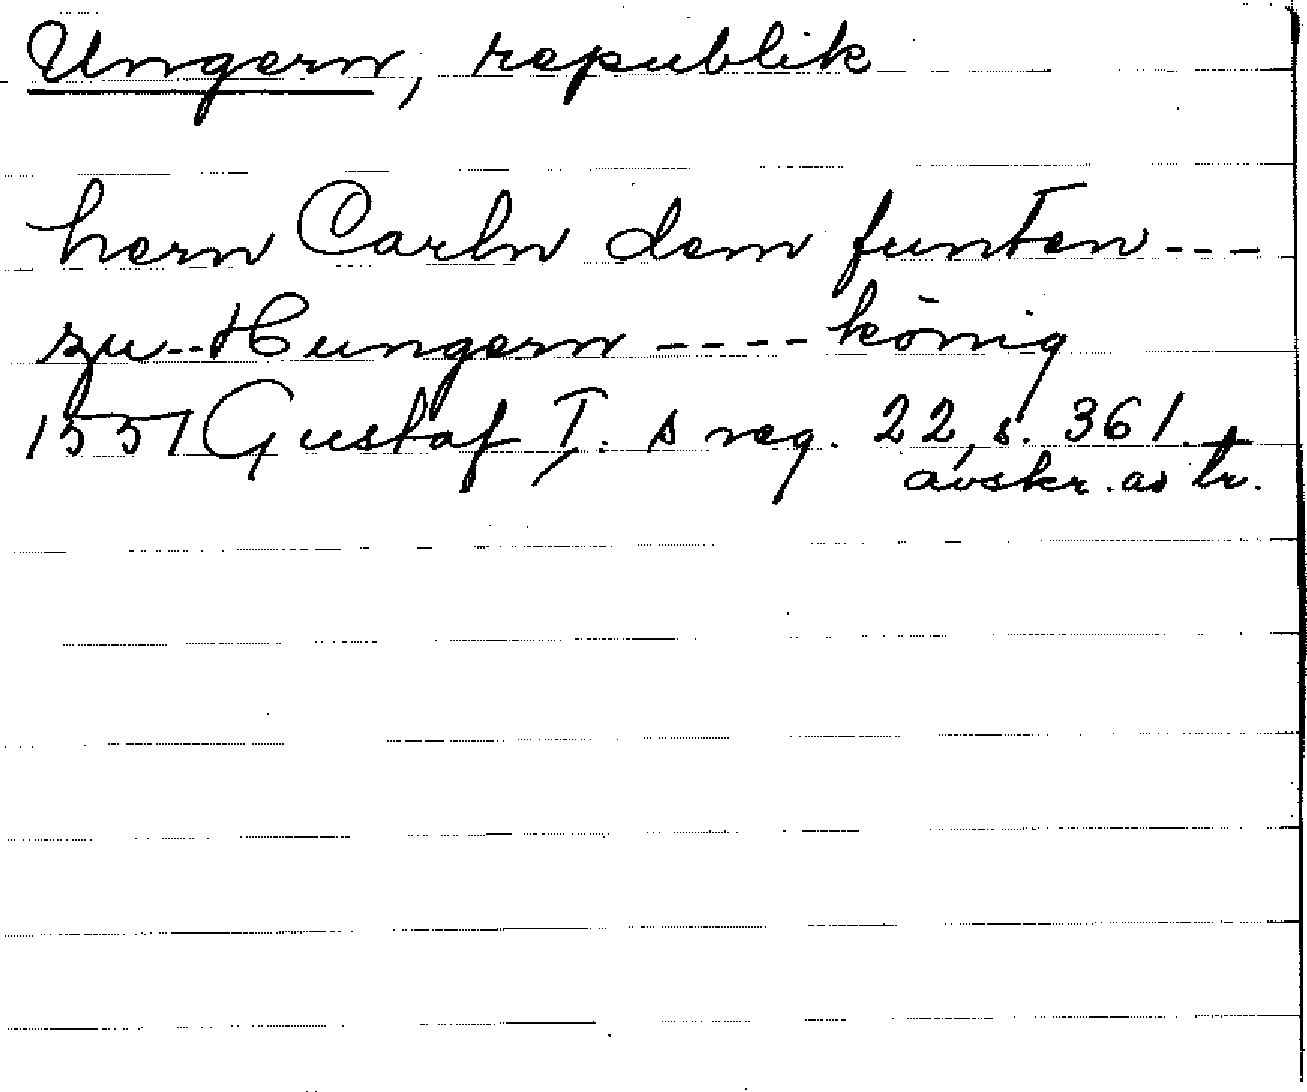 Ungern, republik
hern Carln dem funten ---
zu -- Hungern ---- könig
1551 Gustaf I. s reg. 22, s. 361.
avskr. as tr.